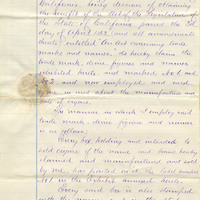 California, being desirous of obtaining
the benefit of an Act of the Legislature of
the State of California passed the 3d
day of April 1863 (and all amendments
thereto) entitled An Act concerning trade
marks and names, do hereby claim the
trade mark, device figures and names
exhibited hereto and marked No 1 and
No 2 and now employed and used
in and about the manufacture and
sale of cigars.
The manner in which I employ said
trade mark, device figures and names
is as follows:
Every box holding and intended to
hold cigars of the name and brand hereby
claimed and manufactured and sold
by me, has pasted on it the label marked
No 1 in the exhibit annexed hereto.
Every said box is also stamped